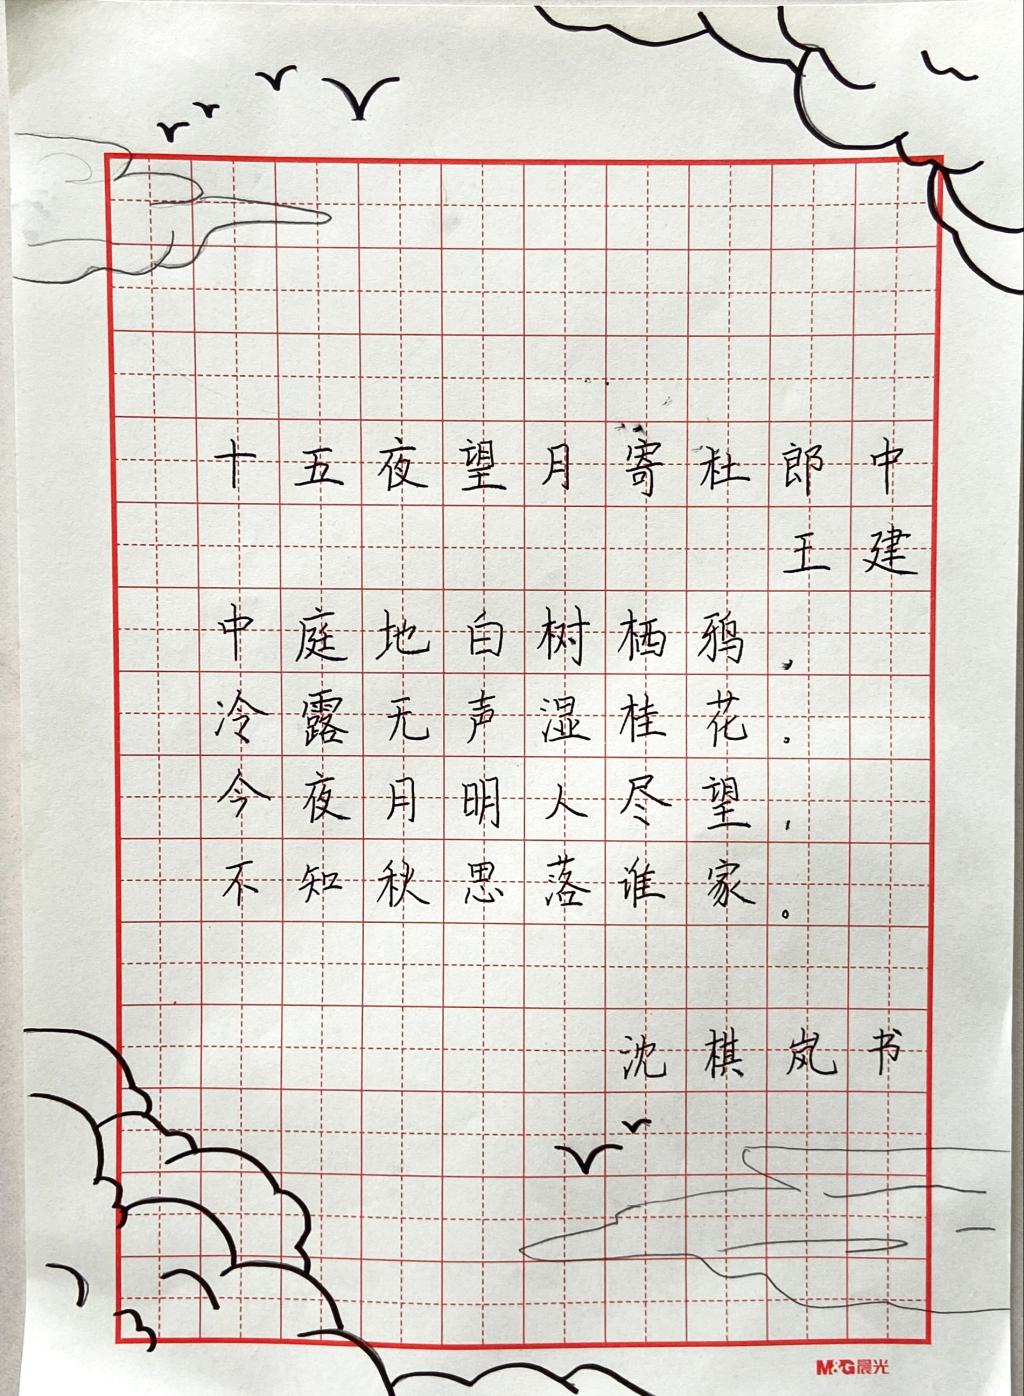 十五夜望月寄杜郎中
王建
中庭地白树栖鸦，
冷露无声湿桂花。
今夜月明人尽望，
不知秋思落谁家。
沈棋岚书
M&G晨光